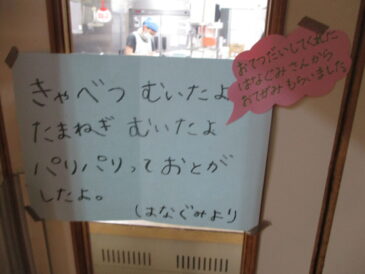 きゃべつ むいたよ
たまねぎ むいたよ
パリパリっておとが
したよ。
はなぐみより
おてつだいしてくれた
はなぐみさんから
おてがみもらいました